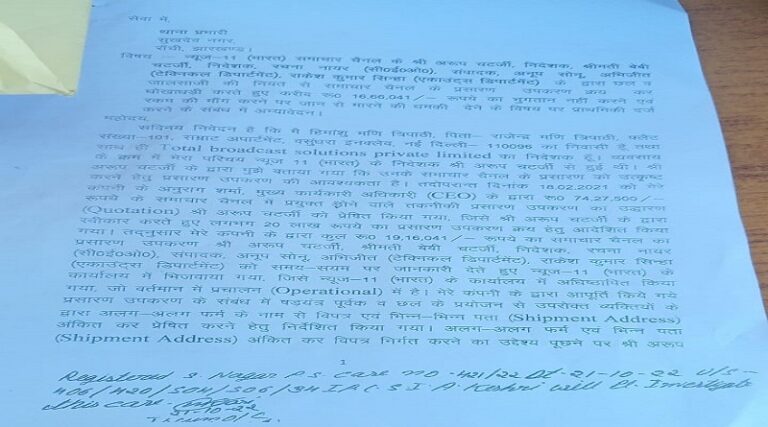 सेवा में,
थाना प्रभारी
सुखदेव नगर,
राँची, झारखण्ड।
विषय – न्यूज-11 (भारत) समाचार चैनल के श्री अरूप चटर्जी, निदेशक, श्रीमती बेबी
चटर्जी, निदेशक, रचना नायर (सी०ई०ओ०), संपादक, अनूप सोनू, अभिजीत
(टेक्निकल डिपार्टमेंट), राकेश कुमार सिन्हा (एकाउंट्स डिपार्टमेंट) के द्वारा छल व
जालसाजी की नियत से समाचार चैनल के प्रसारण उपकरण क्रय कर
धोखाधड़ी करते हुए करीब रू० 16,66,041/– रूपये का भुगतान नहीं करने एवं
रकम की माँग करने पर जान से मारने की धमकी देने के विषय पर प्राथमिकी दर्ज
करने के संबंध में अभ्यावेदन।
महोदय,
सविनय निवेदन है कि मैं हिमांशु मणि त्रिपाठी, पिता– राजेन्द्र मणि त्रिपाठी, फ्लैट
संख्या–101, सम्राट अपार्टमेंट, वसुंधरा इनक्लेव, नई दिल्ली– 110096 का निवासी हूँ तथा
साथ ही Total broadcast solutions private limited का निदेशक हूँ। व्यवसाय
के क्रम में मेरा परिचय न्यूज 11 (भारत) के निदेशक श्री अरूप चटर्जी से हुई थी। श्री
अरूप चटर्जी के द्वारा मुझे बताया गया कि उनके समाचार चैनल के प्रसारण को उत्कृष्ट
करने हेतु प्रसारण उपकरण की आवश्यकता है। तदोपरान्त दिनांक 18.02.2021 को मेरे
कंपनी के अनुराग शर्मा, मुख्य कार्यकारी अधिकारी (CEO) के द्वारा रू० 74,27,500/–
रूपये के समाचार चैनल में प्रयुक्त होने वाले तकनीकी प्रसारण उपकरण का उद्धरण
(Quotation) श्री अरूप चटर्जी को प्रेषित किया गया, जिसे श्री अरूप चटर्जी के द्वारा
स्वीकार करते हुए लगभग 20 लाख रूपये का प्रसारण उपकरण क्रय हेतु आदेशित किया
गया। तद्नुसार मेरे कंपनी के द्वारा कुल रू० 19,16,041/– रूपये का समाचार चैनल का
प्रसारण उपकरण श्री अरूप चटर्जी, श्रीमती बेबी चटर्जी, निदेशक, रचना नायर
(सी०ई०ओ०), संपादक, अनूप सोनू, अभिजीत (टेक्निकल डिपार्टमेंट), राकेश कुमार सिन्हा
(एकाउंट्स डिपार्टमेंट) को समय–समय पर जानकारी देते हुए न्यूज–11 (भारत) के
कार्यालय में भिजवाया गया, जिसे न्यूज–11 (भारत) के कार्यालय में अधिष्ठापित किया
गया, जो वर्तमान में प्रचालन (Operational) में है। मेरे कंपनी के द्वारा आपूर्ति किये गये
प्रसारण उपकरण के संबंध में षडयंत्र पूर्वक व छल के प्रयोजन से उपरोक्त व्यक्तियों के
द्वारा अलग–अलग फर्म के नाम से विपत्र एवं भिन्न–भिन्न पता (Shipment Address)
अंकित कर प्रेषित करने हेतु निर्देशित किया गया। अलग–अलग फर्म एवं भिन्न पता
(Shipment Address) अंकित कर विपत्र निर्गत करने का उद्देश्य पूछने पर श्री अरूप
1
Registered S. Nagar P.S. Case no - 421/22 Dt - 21-10-22 u/s -
406/420/504/506/34 I.P.C. S.I. A. Keshri will Pl. Investigate
this case.
21-10-22